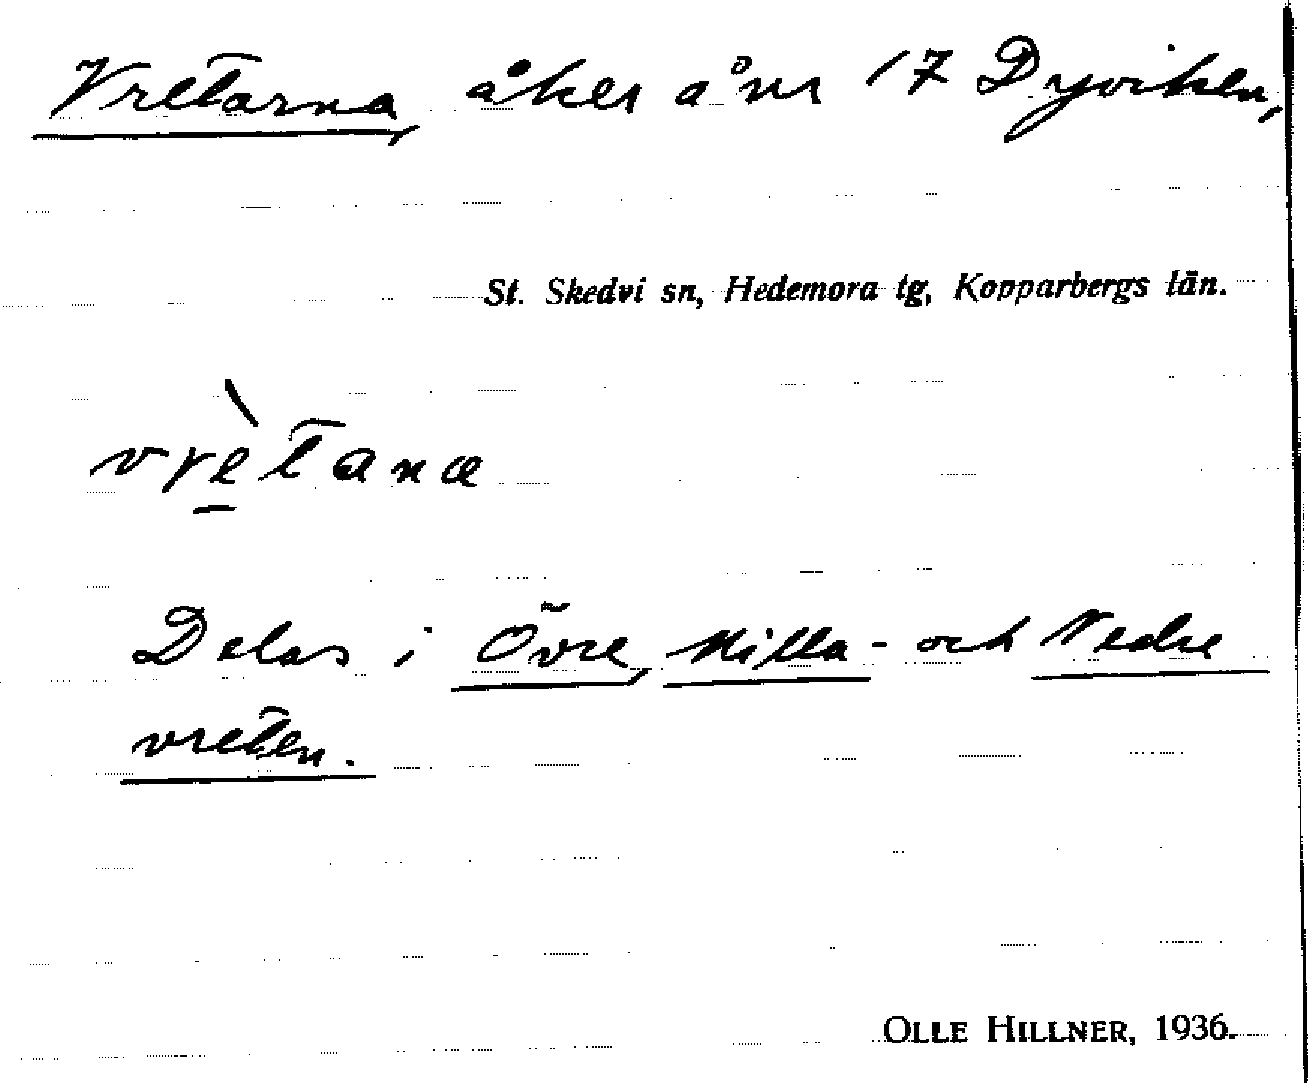 Vretarna, åker å nr 17 Dyviken,
St. Skedvi sn, Hedemora tg, Kopparbergs län.
vrè̲tana
Delas i Övre, Milla- och Nedre
vreten.
OLLE HILLNER, 1936.